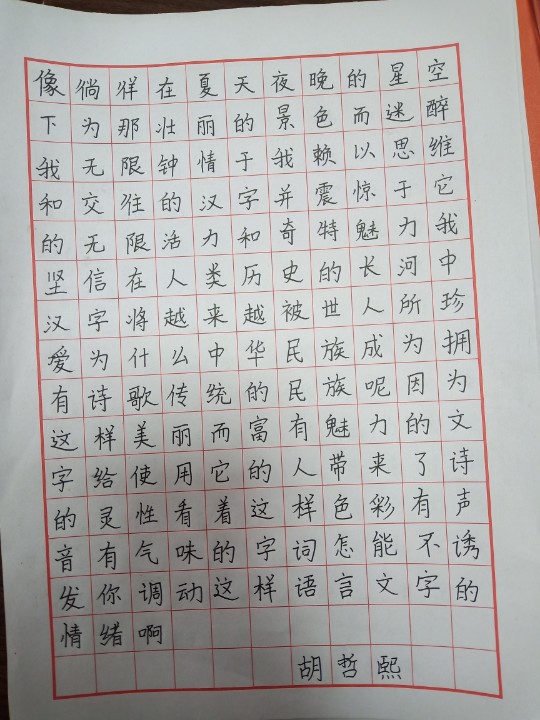 像徜徉在夏天夜晚的星空
下为那壮丽的景色而迷醉
我无限钟情于我赖以思维
和交往的汉字并震惊于它
的无限活力和奇特魅力我
坚信在人类历史的长河中
汉字将越来越被世人所珍
爱为什么中华民族成为拥
有诗歌传统的民族呢因为
这样美丽而富有魅力的文
字给使用它的人带来了诗
的灵性看着这样色彩有声
音有气味的字词怎能不诱
发你调动这样语言文字的
情绪啊
胡哲熙